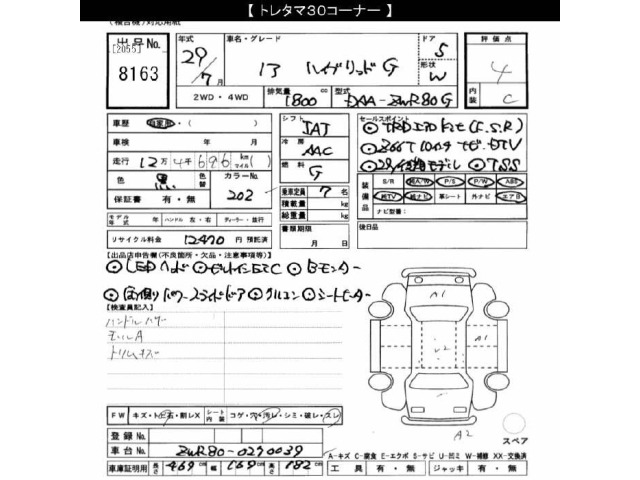 【 トレタマ３０コーナー 】
(検合機)対応用紙
出品No.
[2055]
8163
年式
29/7月
車名・グレード
13 ハイブリッド G
ドア
5
形状
W
評価点
4
内装
C
2WD・4WD
排気量
1800cc
型式
DAA-ZWR80G
車歴 自家用・( )
車検 年 月
走行 12万4千696km(マイル)( )
色 黒
色替
カラーNo.
202
保証書 有・無
シフト
IAT
冷房
AAC
燃料
G
乗車定員 7名
積載量 kg
総重量 kg
書類期限
月 日
セールスポイント
◎TRDエアロキット(F.S.R)
◎BIGX 10インチナビ DTV
◎29後期モデル ◎TSS
装備品
S/R 純A/W P/S P/W ABS
純TV 純ナビ 革シート 外ナビ エアB
ナビ型番：
モデル年式 年 ハンドル 左・右 ディーラー・並行
リサイクル料金 12470円 預託済
後日品
【出品店申告欄(不良箇所・欠品・注意事項等)】
◎LEDヘッド ◎ビルトインETC ◎Bモニター
◎両側パワースライドドア ◎クルコン ◎シートヒーター
【検査員記入】
ハンドル
モールA
トリムキズ
A1
A1
A2
スペア
FW キズ・トビ石・割レX シート内装 コゲ・穴・汚レ・シミ・破レ・スレ
登録No.
車台No. ZWR80-0290039
A-キズ C-腐食 E-エクボ S-サビ U-凹ミ W-補修 XX-交換済
車庫証明用 長さ 469cm 幅 169cm 高さ 182cm 工具 有・無 ジャッキ 有・無